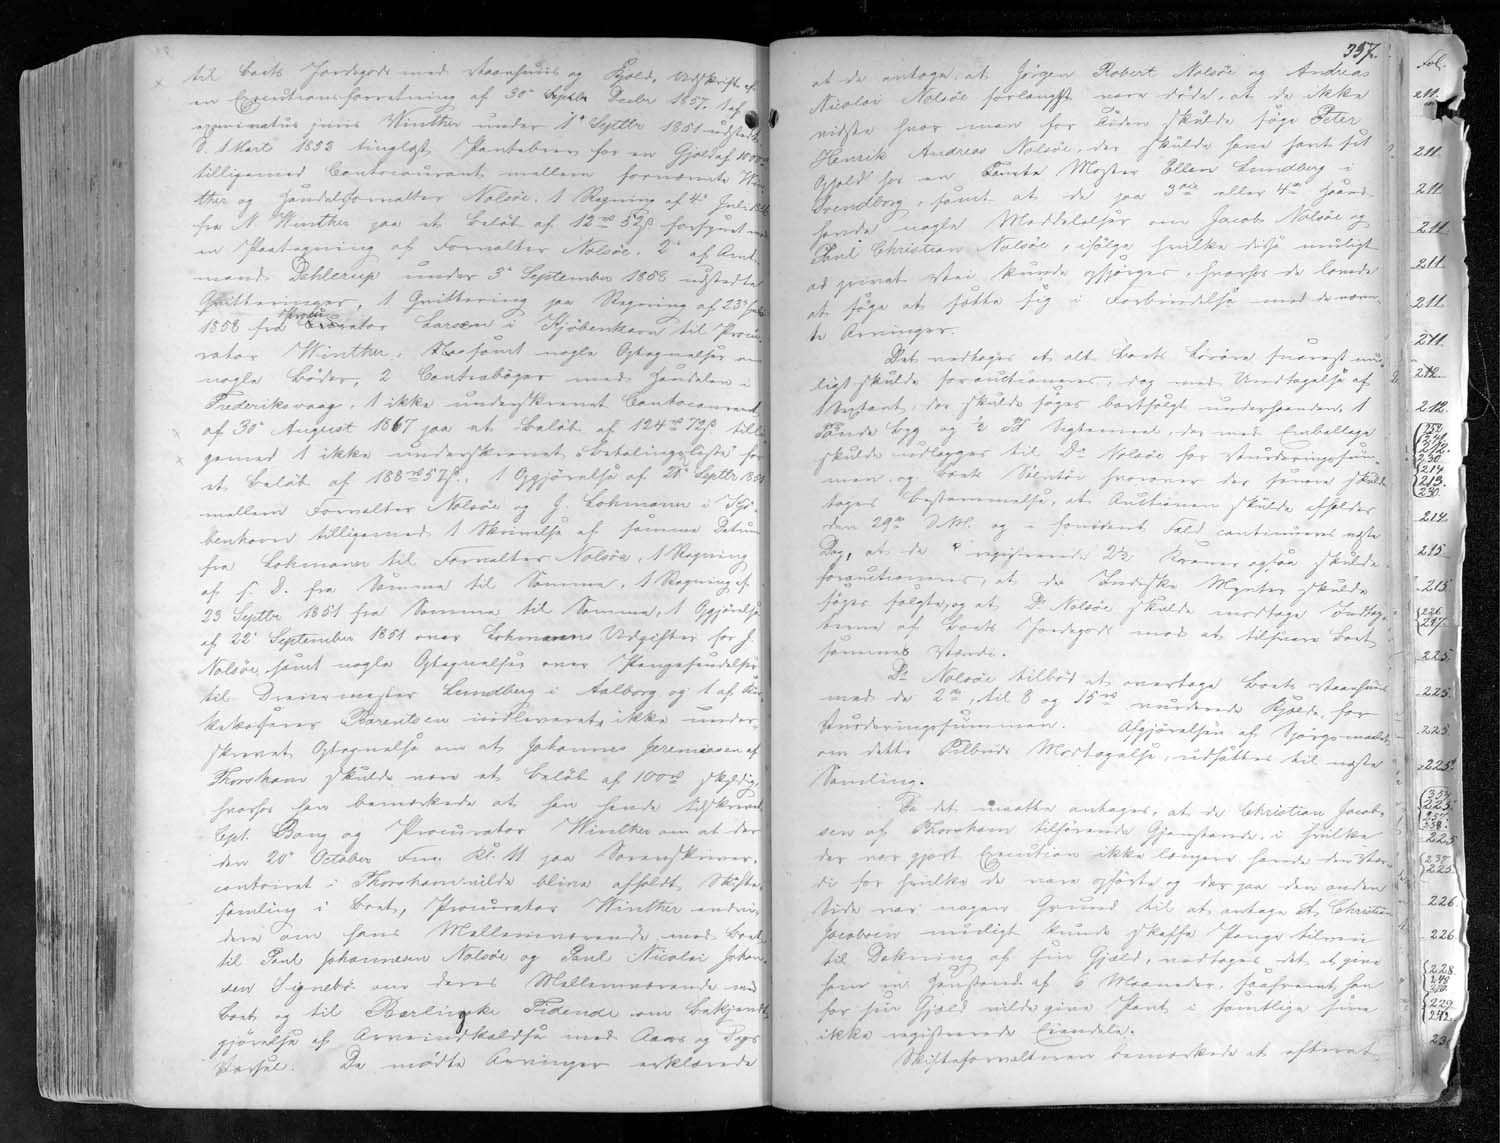 til Boets Jordegods med Vaanhuus og Kjeld, Udskrift af
en Executionsforretning af 30' Decbr 1857, 1 af
examinatus juris Winther under 1' Septbr 1851 udstedt
d. 1 Marts 1853 tinglæst Pantebrev for en Gjæld af 1000
tilligemed Contocourant mellem fornævnte Win
ther og Handelsforvalter Nolsöe, 1 Regning af 4' Juli
fra N. Winther paa et Beløb af 12 rd 52 ß forsynet med
en Paategning af Forvalter Nolsöe, 2 af Amt
mand Dahlerup under 3' September 1858 udstedte
Qvitteringer, 1 Qvittering paa Regning af 23'
1858 fra Procurator Larsen i Kjöbenhavn til Procu
rator Winther, samt nogle Optegnelser om
nogle Bøder, 2 Contrabøger med Handelen i
Frederiksvaag, 1 ikke underskrevet Contocourant
af 30' August 1867 paa et Beløb af 124 rd 72 ß tilli
gemed 1 ikke underskrevet Betalingsliste for
et Beløb af 188 rd 57 ß, 1 Opgjørelse af 21' Septbr 1851
mellem Forvalter Nolsöe og J. Lohmann i Kjø
benhavn tilligemed 1 Skrivelse af samme Datum
fra Lohmann til Forvalter Nolsöe, 1 Regning
af s. D. fra Samme til Samme, 1 Regning af
23 Septbr 1851 fra Samme til Samme, 1 Opgjørelse
af 22' September 1851 over Lohmanns Udgifter for J.
Nolsöe samt nogle Optegnelser over Pengesendelser
til Dreiermester Lundberg i Aalborg og 1 af
Barentsen indleveret, ikke under
skrevet Optegnelse om at Johannes Jeremiassen af
Thorshavn skulde være et Beløb af 100 rd skyldig,
hvorhos han bemærkede at han havde tilskrevet
Cept. Bang og Procurator Winther om at der
den 20' October Fm. Kl. 11 paa Sorenskriver-
contoiret i Thorshavn vilde blive afholdt Skifte
samling i Boet, Procurator Winther endvi
dere om hans Mellemværende med Boet
til Poul Johannesen Nolsöe og Poul Nicolai Johan
sen Signebö om deres Mellemværende med
Boet og til Berlingske Tidende om Bekjendt
gjörelse af Arveindkaldelse med Aars og Dags
Varsel. De mødte Arvinger erklærede
357.
at de antoge, at Jörgen Robert Nolsöe og Andreas
Nicolai Nolsöe forlængst vare døde, at de ikke
vidste hvor man for Tiden skulde søge Peter
Henrik Andreas Nolsöe, der skulde have havt sit
Ophold hos en Tante Moster Ellen Lundberg i
Svendborg, samt at de paa 3die eller 4de Haand
havde nogle Meddelelser om Jacob Nolsöe og
Poul Christian Nolsöe, ifølge hvilke disse muligt
ad privat Vei kunde opspørges, hvorhos de lovede
at søge at sætte sig i Forbindelse med de nævn
te Arvinger.
Det vedtoges at alt Boets Løsøre snarest mu
ligt skulde forauctioneres, dog med Undtagelse af
1 Sextant, der skulde søges bortsolgt underhaanden, 1
Tønde Byg og ½ Septemeel der med Emballage
skulde udlægges til D' Nolsöe for Vurderingssum
men, og Boets hvorover der senere skulde
tages Bestemmelse, at Auctionen skulde afholdes
den 29de d. M. og i fornødent Fald continueres næste
Dag, at de registrerede 2½ Kroner ogsaa skulde
forauctioneres, at de Indiske Mynter skulde
søges solgte, og at D' Nolsöe skulde modtage Indtæg
terne af Boets Jordegods mod at tilsvare Boet
sammes Værdi.
D' Nolsöe tilbød at overtage Boets Vaanhuus
med de 2de, til 8 og 15 rd vurderede Kjelde, for
Vurderingssummen. Afgjørelsen af Spørgsmaalet
om dette Tilbuds Modtagelse, udsattes til næste
Samling.
Da det maatte antages, at de Christian Jacob
sen af Thorshavn tilhørende Gjenstande, i hvilke
der var gjort Execution ikke længere havde den Vær
di for hvilke de vare opførte og der paa den anden
Side var nogen Grund til at antage at Christian
Jacobsen muligt kunde skaffe Penge tilveie
til Dækning af sin Gjæld, vedtoges det at give
ham en Henstand af 6 Maaneder, saafremt han
for sin Gjæld vilde give Pant i samtlige sine
ikke registrerede Eiendele.
Skifteforvalteren bemærkede at efterat
Fol.
211.
211.
211.
211.
211.
211.
211.
212.
212.
230.
214
213.
230.
214.
215
215
226
217.
225.
225.
225.
225.
225
338.
225
237
225.
226
226
228.
229.
242.